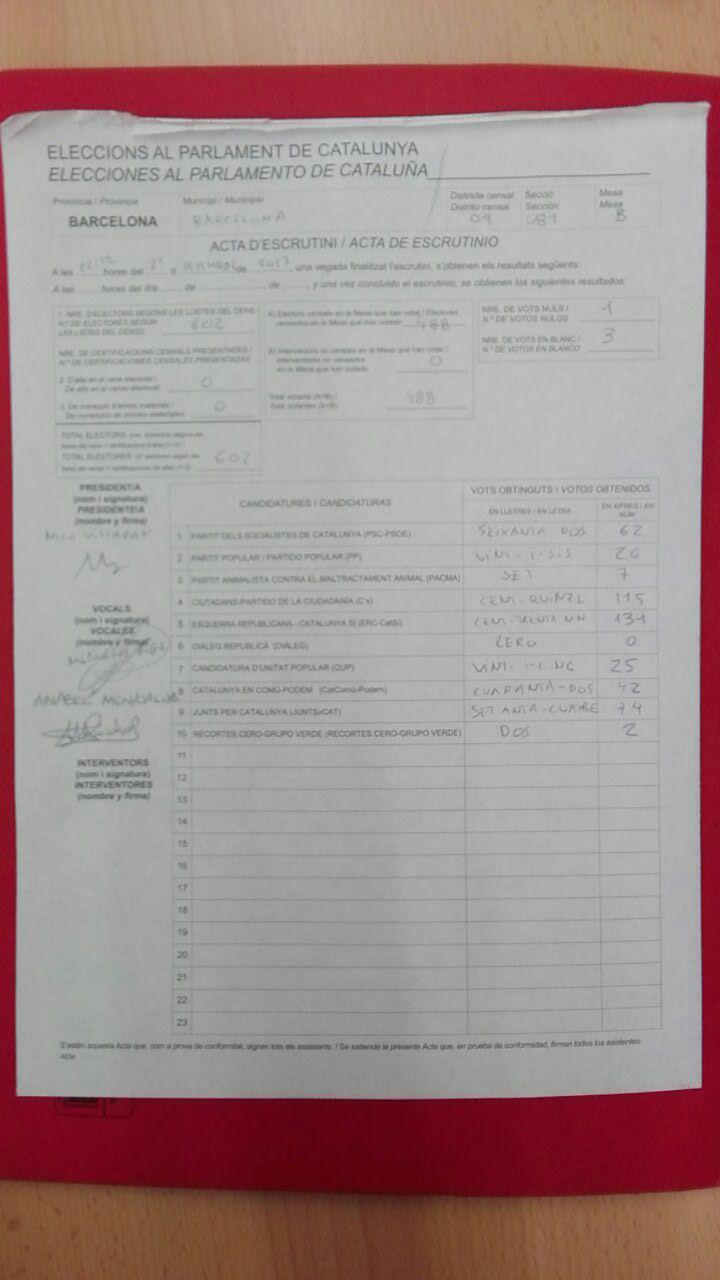 ELECCIONS AL PARLAMENT DE CATALUNYA
ELECCIONES AL PARLAMENTO DE CATALUÑA
Província / Provincia
Municipi / Municipio
Districte censal
Distrito censal
Secció
Sección
Mesa
Mesa
BARCELONA
BARCELONA
09
081
B
ACTA D'ESCRUTINI / ACTA DE ESCRUTINIO
A les hores del 21 d de 2017 una vegada finalitzat l'escrutini, s'obtenen els resultats següents:
A las horas del día de de , y una vez concluido el escrutinio, se obtienen los siguientes resultados:
1. NRE. D'ELECTORS SEGONS LES LLISTES DEL CENS
N.º DE ELECTORES SEGÚN
LAS LISTAS DEL CENSO
602
NRE. DE CERTIFICACIONS CENSALS PRESENTADES /
N.º DE CERTIFICACIONES CENSALES PRESENTADAS
2. D'alta en el cens electoral /
De alta en el censo electoral:
0
3. De correcció d'errors materials /
De corrección de errores materiales:
0
TOTAL ELECTORS
TOTAL ELECTORES
602
A) Electors censats en la Mesa que han votat / Electores
censados en la Mesa que han votado
488
B) Interventors no censats en la Mesa que han votat /
Interventores no censados
en la Mesa que han votado
0
Total votants (A+B) /
Total votantes (A+B):
488
NRE. DE VOTS NULS /
N.º DE VOTOS NULOS
1
NRE. DE VOTS EN BLANC /
N.º DE VOTOS EN BLANCO
3
PRESIDENT/A
(nom i signatura)
PRESIDENTE/A
(nombre y firma)
VOCALS
(nom i signatura)
VOCALES
(nombre y firma)
ANABEL
INTERVENTORS
(nom i signatura)
INTERVENTORES
(nombre y firma)
CANDIDATURES / CANDIDATURAS
VOTS OBTINGUTS / VOTOS OBTENIDOS
EN LLETRES / EN LETRA
EN XIFRES / EN NÚM.
1 PARTIT DELS SOCIALISTES DE CATALUNYA (PSC-PSOE) SEIXANTA DOS 62
2 PARTIT POPULAR / PARTIDO POPULAR (PP) VINT-I-SIS 26
3 PARTIT ANIMALISTA CONTRA EL MALTRACTAMENT ANIMAL (PACMA) SET 7
4 CIUTADANS-PARTIDO DE LA CIUDADANÍA (C's) CENT-QUINZE 115
5 ESQUERRA REPUBLICANA - CATALUNYA SÍ (ERC-CatSí) CENT-TRENTA UN 131
6 DIÀLEG REPUBLICÀ (DIÀLEG) ZERO 0
7 CANDIDATURA D'UNITAT POPULAR (CUP) VINT-I-CINC 25
8 CATALUNYA EN COMÚ-PODEM (CatComú-Podem) CUARANTA-DOS 42
9 JUNTS PER CATALUNYA (JUNTSxCAT) SETANTA-CUATRE 74
10 RECORTES CERO-GRUPO VERDE (RECORTES CERO-GRUPO VERDE) DOS 2
11
12
13
14
15
16
17
18
19
20
21
22
23
S'estén aquesta Acta que, com a prova de conformitat, signen tots els assistents. / Se extiende la presente Acta que, en prueba de conformidad, firman todos los asistentes.
AEM